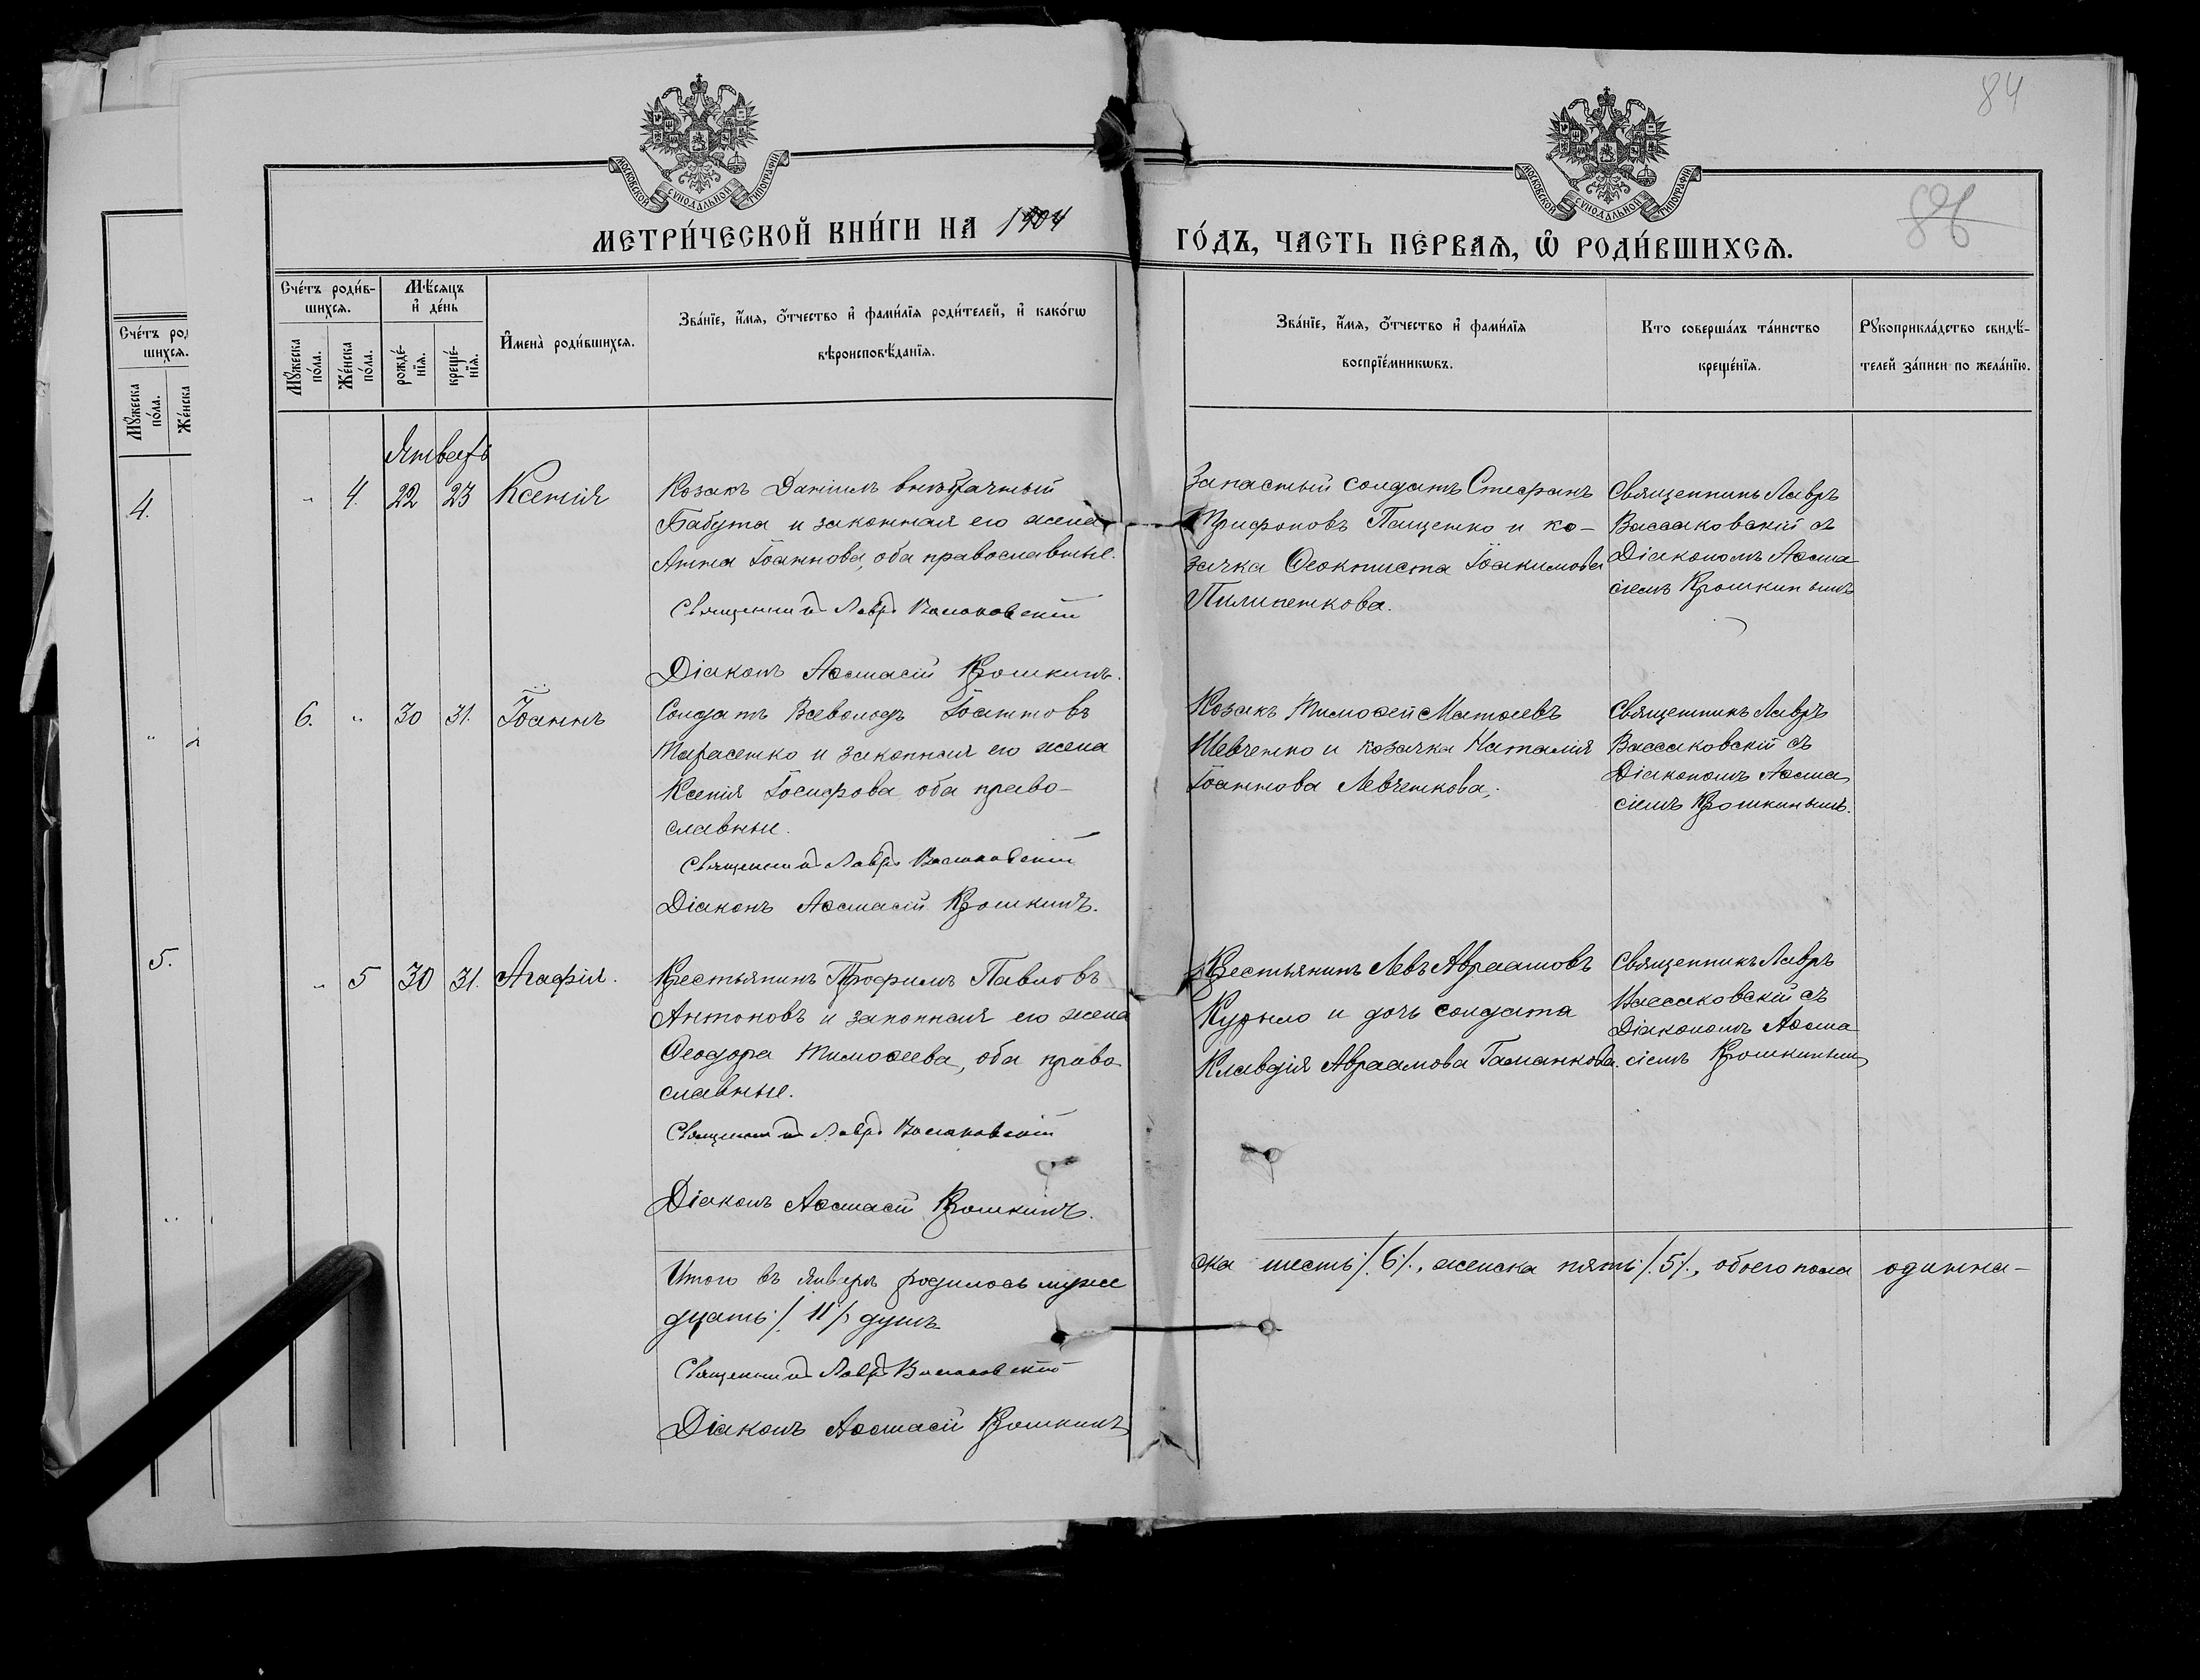 84
88
МОСКОВСКОЙ СѴНОДАЛЬНОЙ ТИПОГРАФІИ
МОСКОВСКОЙ СѴНОДАЛЬНОЙ ТИПОГРАФІИ
МЕТРИ́ЧЕСКОЙ КНИ́ГИ НА 1904 ГО́ДЪ, ЧАСТЬ ПЕ́РВАѦ, Ѿ РОДИ́ВШИХСѦ.
Сче́тъ роди́в-
шихсѧ.
Мꙋ́жеска по́ла.
Же́нска по́ла.
Мѣ́сѧцъ
и҆ де́нь
рожде́-
нїѧ.
креще́-
нїѧ.
И҆мена̀ роди́вшихсѧ.
Зва́нїе, и҆́мѧ, ѻ҆́тчество и҆ фами́лїѧ роди́телей, и҆ како́гѡ
вѣроисповѣ́данїѧ.
Зва́нїе, и҆́мѧ, ѻ҆́тчество и҆ фами́лїѧ
воспрїе́мникѡвъ.
Кто соверша́лъ та́инство
креще́нїѧ.
Рꙋкоприкла́дство свидѣ́-
телей за́писи по жела́нїю.
Сче́тъ род
шихсѧ.
Мꙋ́жеска
по́ла.
Же́нска
4.
5.
Январь
" 4. 22 23 Ксенія
Козакъ Даніилъ внѣбрачный
Бабута и законная его жена
Анна Іоаннова, оба православные.
Священникъ Лавръ Вассаковскій
Діаконъ Аѳанасій Крошкинъ.
Запасный солдатъ Стефанъ
Трифоновъ Пащенко и ко-
зачка Ѳеоктиста Іоакимова
Пилипенкова.
Священникъ Лавръ
Вассаковскій съ
Діакономъ Аѳана
сіемъ Крошкинымъ
6. " 30 31. Іоаннъ
Солдатъ Всеволодъ Іоанновъ
Тарасенко и законная его жена
Ксенія Іосифова, оба право-
славные.
Священникъ Лавръ Вассаковскій
Діаконъ Аѳанасій Крошкинъ.
Козакъ Тимоѳей Матѳеевъ
Шевченко и козачка Наталія
Іоаннова Левченкова.
Священникъ Лавръ
Вассаковскій съ
Діакономъ Аѳана
сіемъ Крошкинымъ.
" 5 30 31. Агафія.
Крестьянинъ Трофимъ Павловъ
Антоновъ и законная его жена
Ѳеодора Тимоѳеева, оба право
славные.
Священникъ Лавръ Вассаковскій
Діаконъ Аѳанасій Крошкинъ.
Крестьянинъ Левъ Авраамовъ
Курыло и дочь солдата
Клавдія Авраамова Гаманкова.
Священникъ Лавръ
Вассаковскій съ
Діакономъ Аѳана
сіемъ Крошкинымъ
Итого въ январѣ родилось муже
ска шесть /.6/., женска пять /.5/., обоего пола одинна-
дцать /.11/. душъ
Священникъ Лавръ Вассаковскій
Діаконъ Аѳанасій Крошкинъ